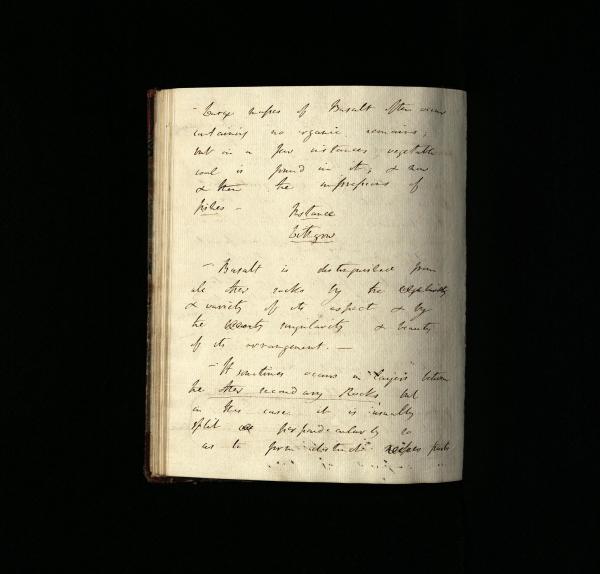 - Large masses of Basalt often occur
containing no organic remains;
but in a few instances vegetable
coal is found in it; & now
& then the impressions of
fishes -
Instance
- Basalt is distinguished from
all other rocks by the
& variety of its aspect & by
the singularity & beauty
of its arrangement. —
- It sometimes occurs in layers between
the other secondary Rocks but
in this case it is usually
split perpendicularly so
as to form distinct parts